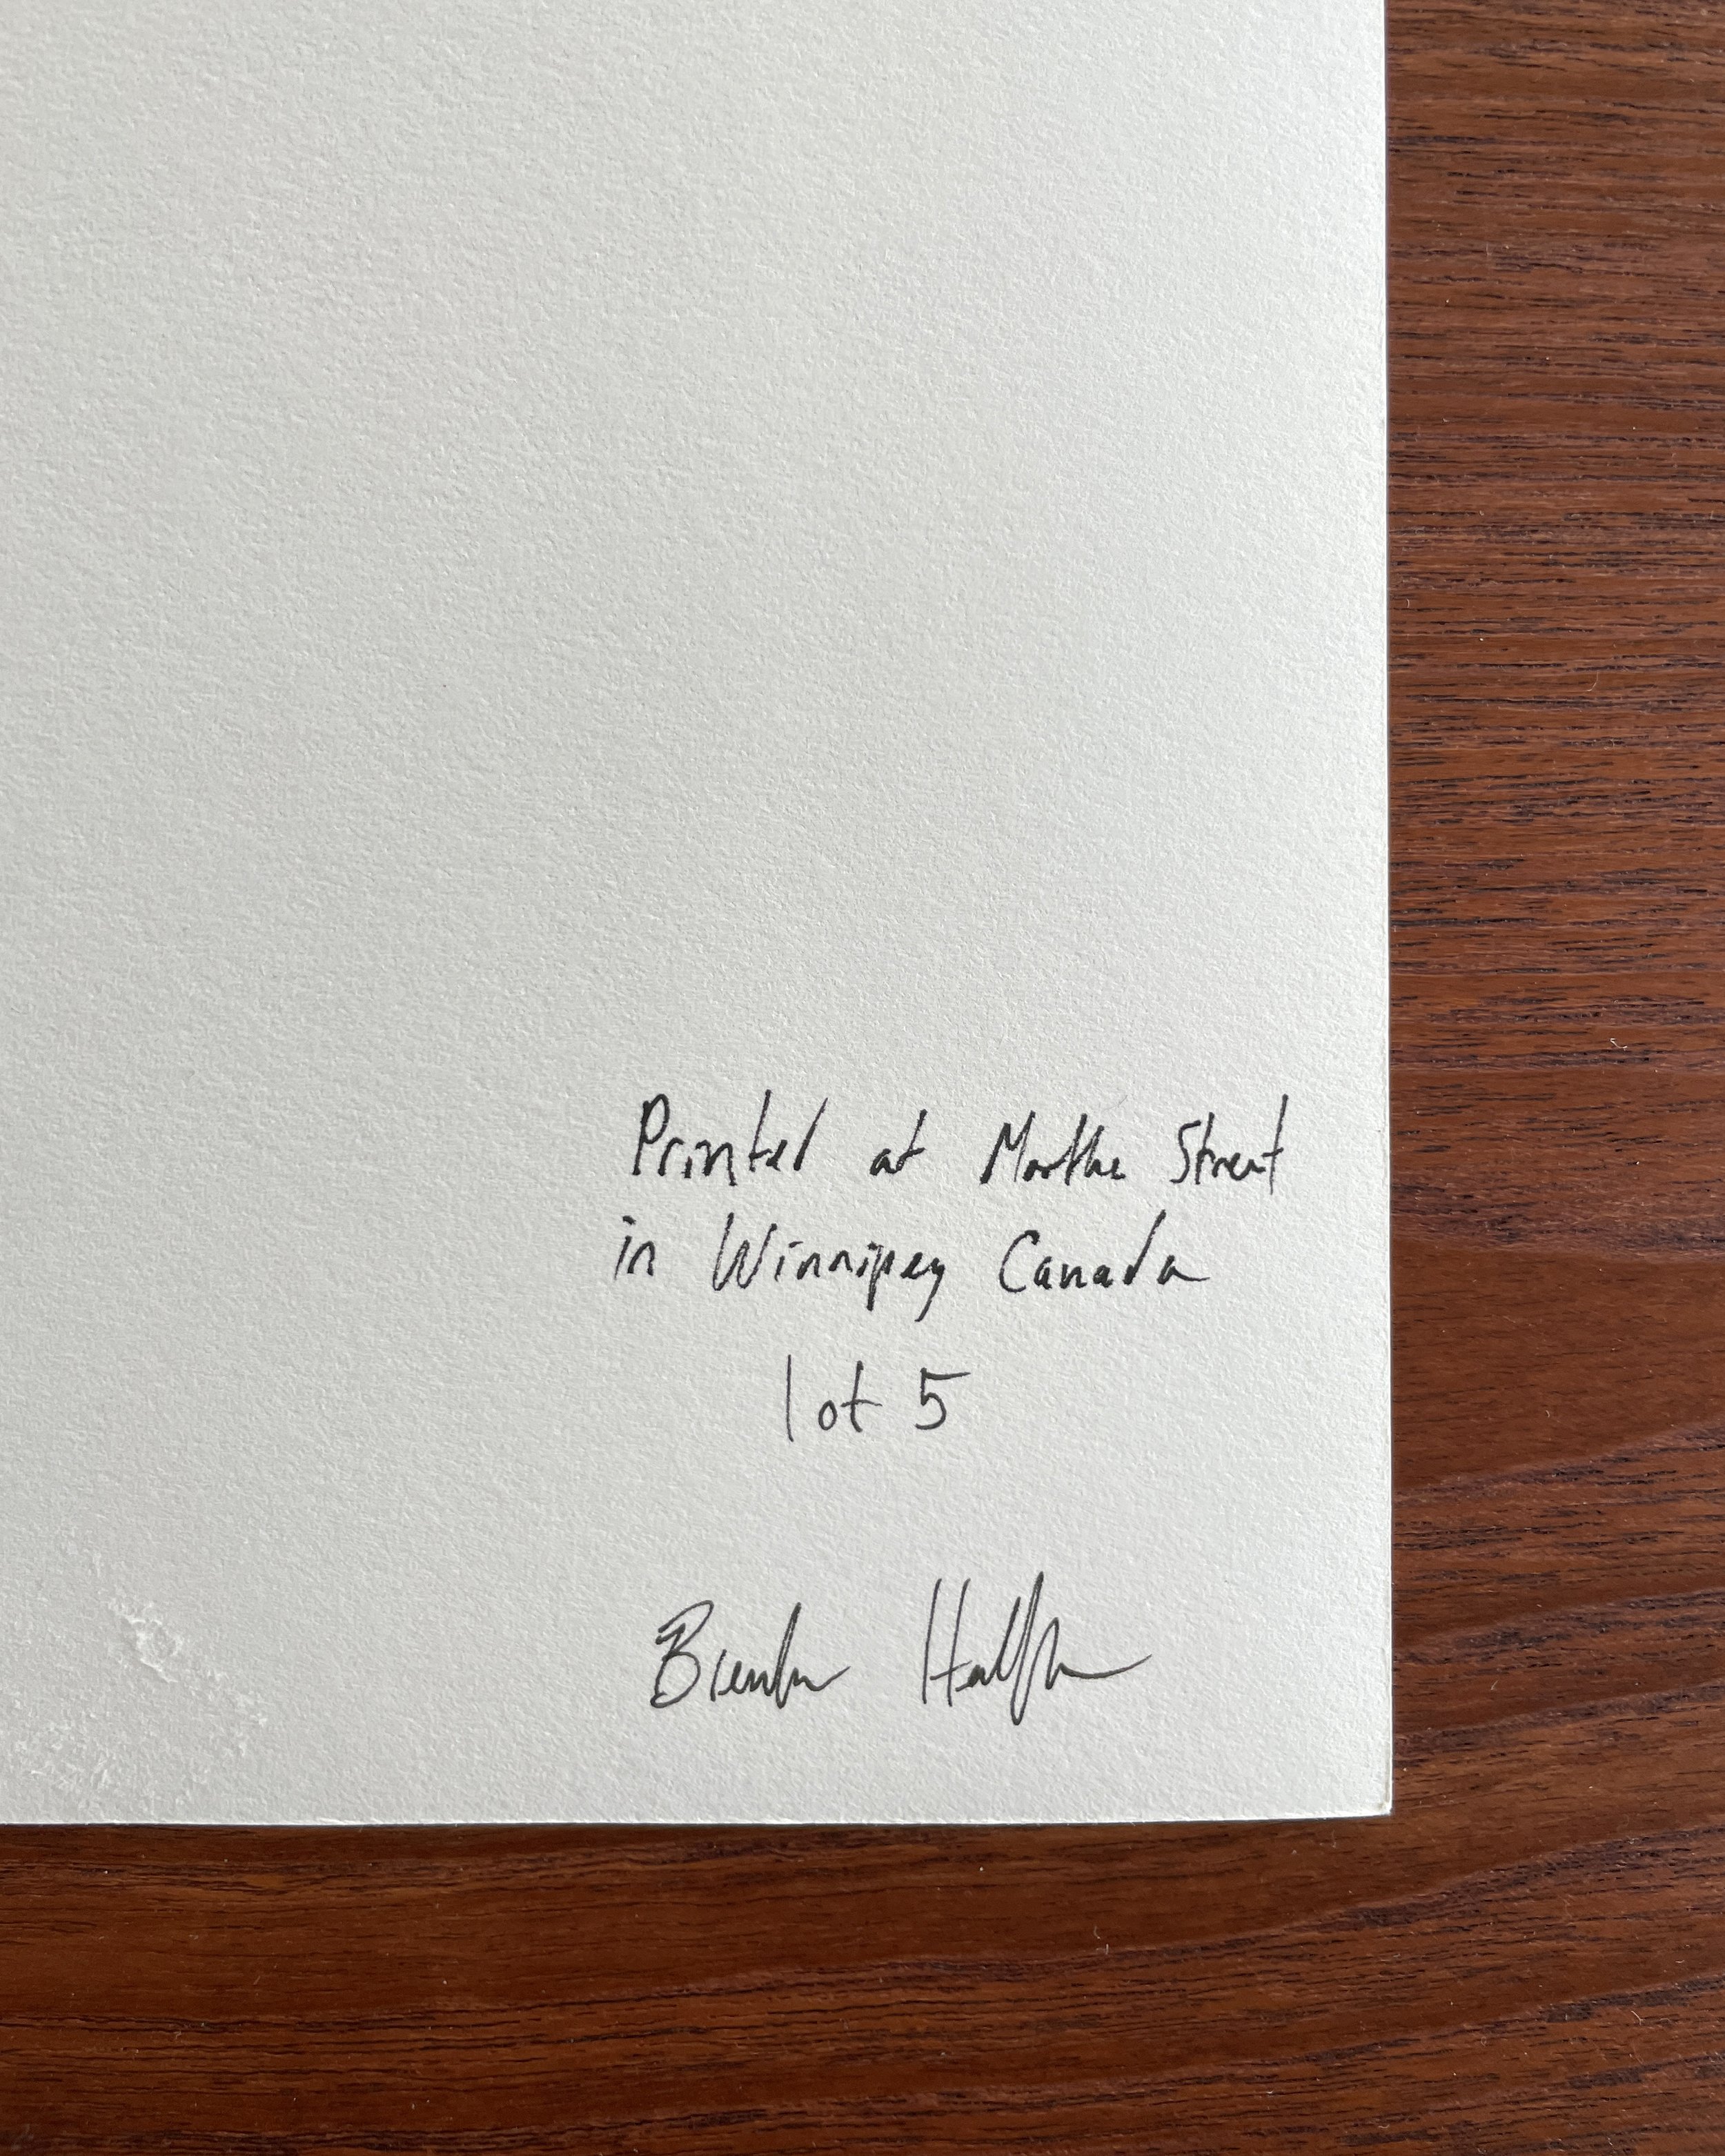 Printed at Martha Street
in Winnipeg Canada
1 of 5